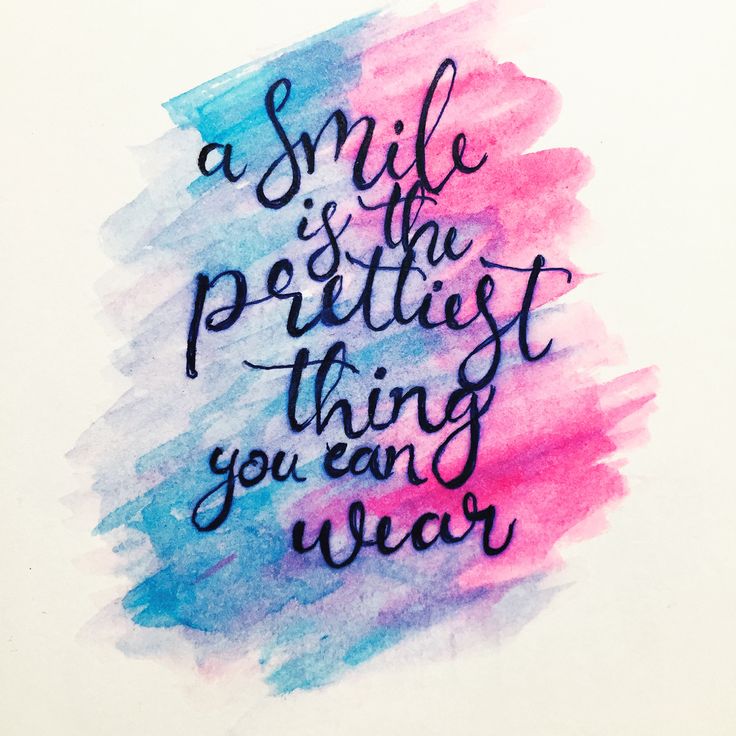 a smile
is the
prettiest
thing
you can
wear